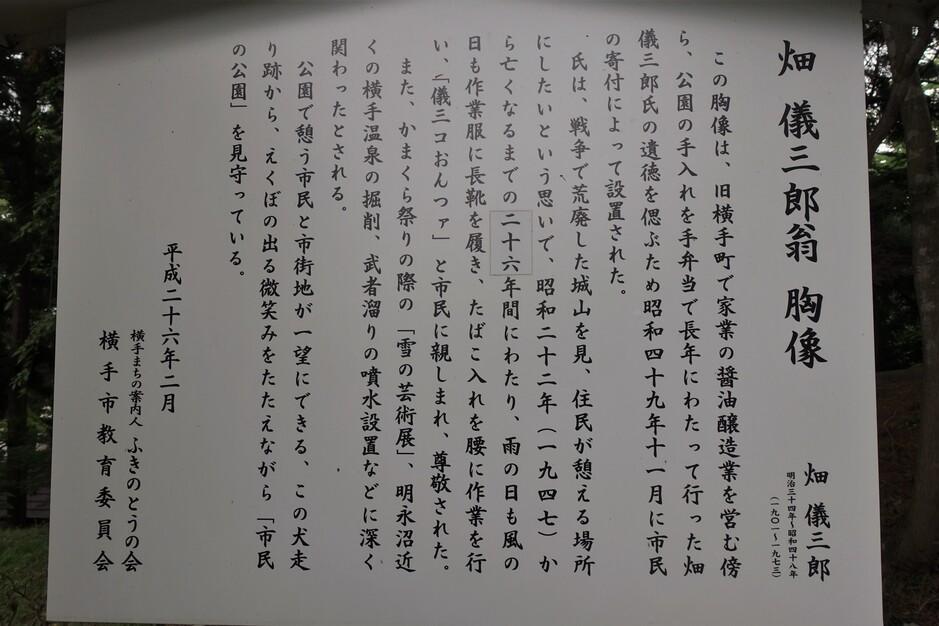 畑 儀三郎翁 胸像
畑 儀三郎
明治三十四年～昭和四十八年
（一九〇一～一九七三）
この胸像は、旧横手町で家業の醤油醸造業を営む傍
ら、公園の手入れを手弁当で長年にわたって行った畑
儀三郎氏の遺徳を偲ぶため昭和四十九年十一月に市民
の寄付によって設置された。
氏は、戦争で荒廃した城山を見、住民が憩える場所
にしたいという思いで、昭和二十二年（一九四七）か
ら亡くなるまでの二十六年間にわたり、雨の日も風の
日も作業服に長靴を履き、たばこ入れを腰に作業を行
い、「儀三コおんつァ」と市民に親しまれ、尊敬された。
また、かまくら祭りの際の「雪の芸術展」、明永沼近
くの横手温泉の掘削、武者溜りの噴水設置などに深く
関わったとされる。
公園で憩う市民と市街地が一望にできる、この犬走
り跡から、えくぼの出る微笑みをたたえながら「市民
の公園」を見守っている。
平成二十六年二月
横手まちの案内人 ふきのとうの会
横手市教育委員会